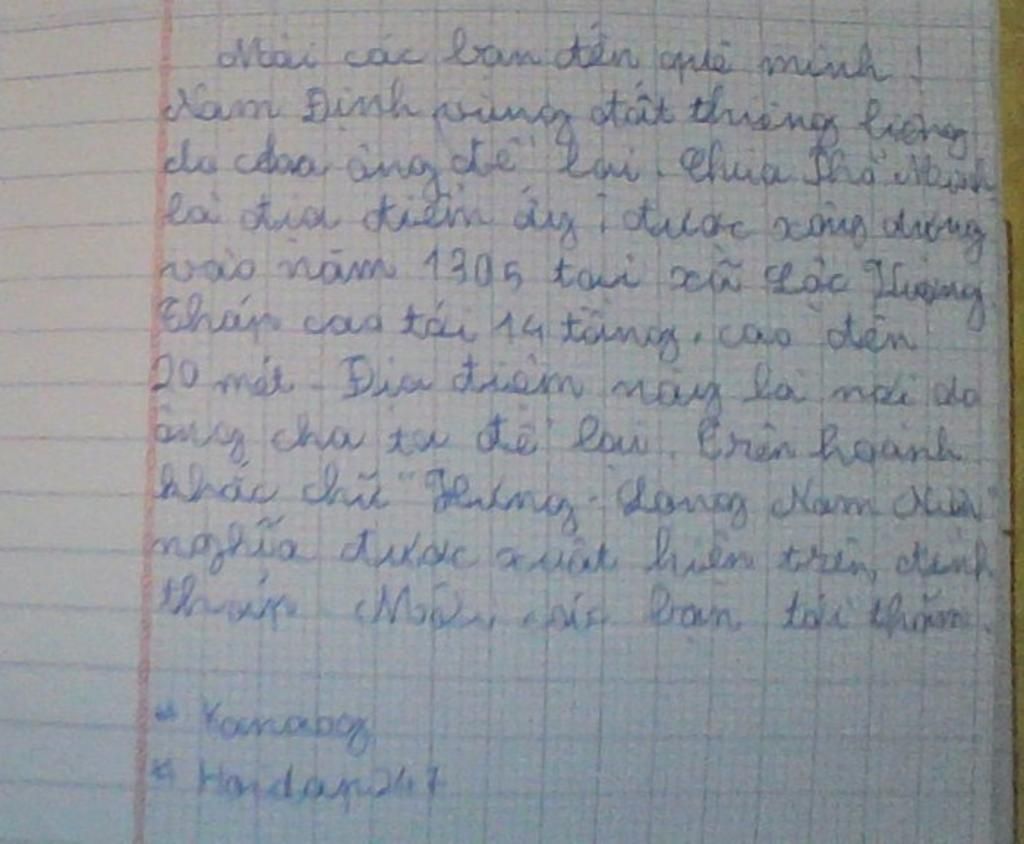 Mời các bạn đến quê mình !
Nam Định vùng đất thiêng liêng
do cha ông để lại. Chùa Phổ Minh
là địa điểm ấy, được xây dựng
vào năm 1305 tại xã Lộc Vượng
Tháp cao tới 14 tầng, cao đến
20 mét. Địa điểm này là nơi do
ông cha ta để lại. Trên hoành
khắc chữ "Hưng Long Nam
nghĩa được xuất hiện trên đỉnh
tháp Mời các bạn tới thăm.
* Yanaog
* Hoidap247